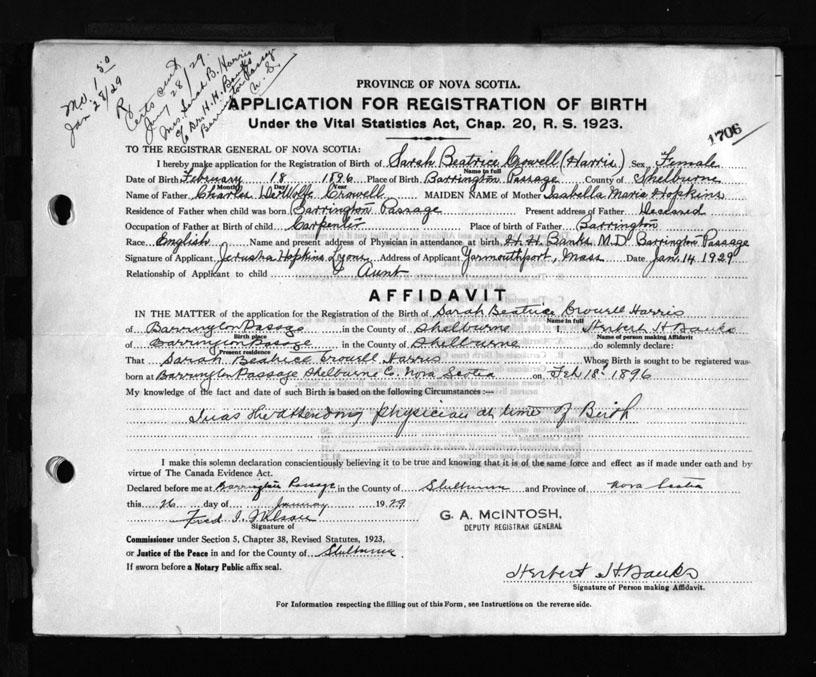 Mo. 1.50
Jan 28/29
Certs sent
Jany 28/29.
Mrs. Sarah B. Harris
c/o Dr. H. H. Banks
Barrington Passage
N. S.
PROVINCE OF NOVA SCOTIA.
APPLICATION FOR REGISTRATION OF BIRTH
Under the Vital Statistics Act, Chap. 20, R. S. 1923.
1706
TO THE REGISTRAR GENERAL OF NOVA SCOTIA:
I hereby make application for the Registration of Birth of Sarah Beatrice Crowell (Harris) Sex Female
Name in full
Date of Birth February 18 1896 Place of Birth Barrington Passage County of Shelburne
Month Day Year
Name of Father Charles DeWolfe Crowell MAIDEN NAME of Mother Isabella Maria Hopkins
Residence of Father when child was born Barrington Passage Present address of Father Deceased
Occupation of Father at Birth of child Carpenter Place of birth of Father Barrington
Race English Name and present address of Physician in attendance at birth H. H. Banks M.D. Barrington Passage
Signature of Applicant Jerusha Hopkins Lyons Address of Applicant Yarmouthport, Mass Date Jan. 14 1929
Relationship of Applicant to child Aunt
AFFIDAVIT
IN THE MATTER of the application for the Registration of the Birth of Sarah Beatrice Crowell Harris
Name in full
of Barrington Passage in the County of Shelburne I Herbert H Banks
Birth place Name of person making Affidavit
of Barrington Passage in the County of Shelburne do solemnly declare:
Present residence
That Sarah Beatrice Crowell Harris Whose Birth is sought to be registered was
born at Barrington Passage Shelburne C. Nova Scotia on Feb 18th 1896
My knowledge of the fact and date of such Birth is based on the following Circumstances:—
I was the attending physician at time of Birth
I make this solemn declaration conscientiously believing it to be true and knowing that it is of the same force and effect as if made under oath and by
virtue of The Canada Evidence Act.
Declared before me at Barrington Passage in the County of Shelburne and Province of Nova Scotia
this 26 day of January 1929
Fred I.
Signature of
G. A. McINTOSH,
DEPUTY REGISTRAR GENERAL
Commissioner under Section 5, Chapter 38, Revised Statutes, 1923,
or Justice of the Peace in and for the County of Shelburne
If sworn before a Notary Public affix seal.
Herbert H Banks
Signature of Person making Affidavit.
For Information respecting the filling out of this Form, see Instructions on the reverse side.